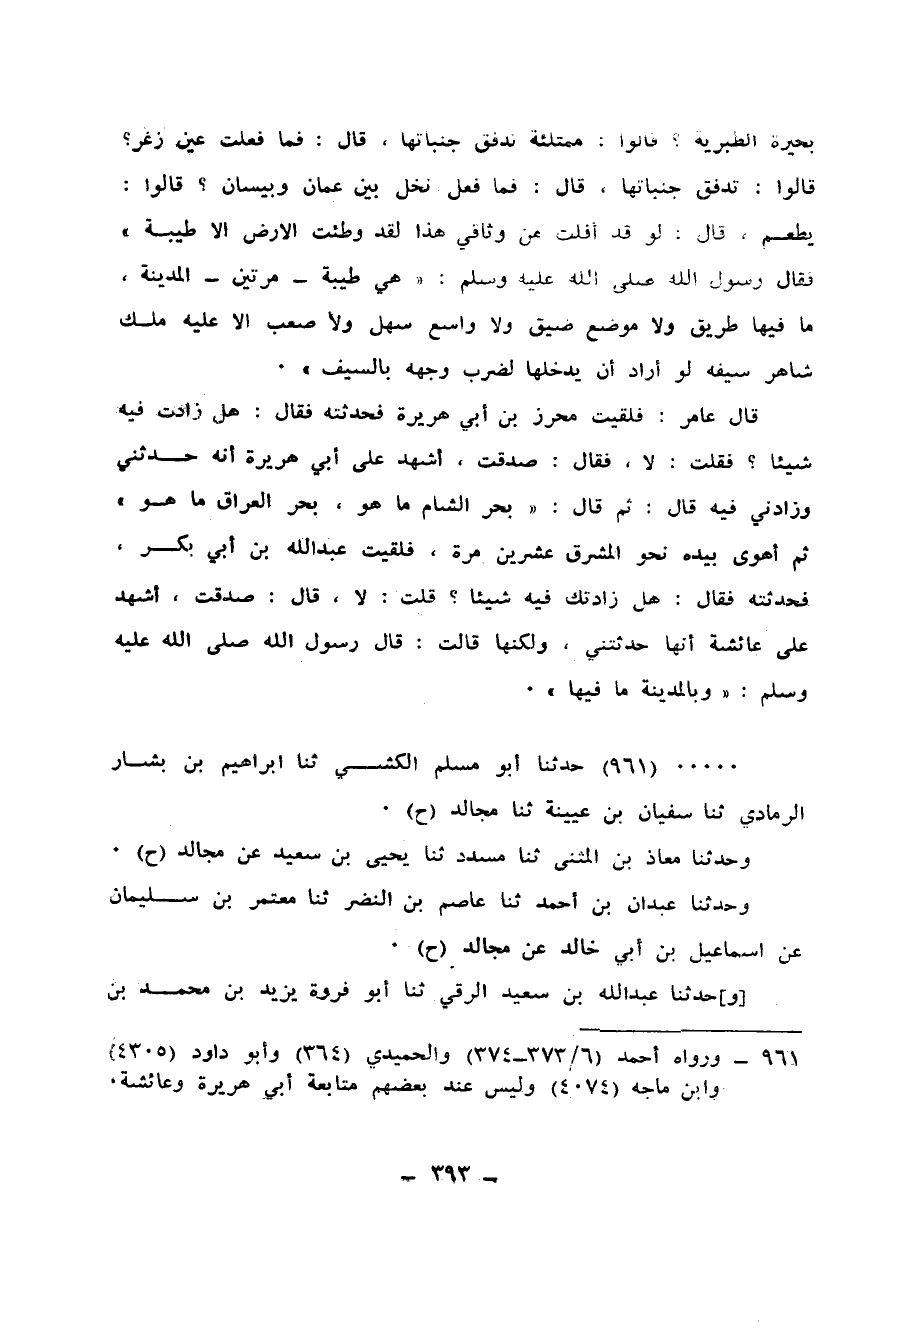 بحيرة الطبرية ؟ قالوا : ممتلئة تدفق جنباتها ، قال : فما فعلت عين زغر؟
قالوا : تدفق جنباتها ، قال : فما فعل نخل بين عمان وبيسان ؟ قالوا :
يطعم ، قال : لو قد أفلت من وثاقي هذا لقد وطئت الارض الا طيبة »
فقال رسول الله صلى الله عليه وسلم : « هي طيبة – مرتين – المدينة ،
ما فيها طريق ولا موضع ضيق ولا واسع سهل ولا صعب الا عليه ملك
شاهر سيفه لو أراد أن يدخلها لضرب وجهه بالسيف » ٠
قال عامر : فلقيت محرز بن أبي هريرة فحدثته فقال : هل زادت فيه
شيئا ؟ فقلت : لا ، فقال : صدقت ، أشهد على أبي هريرة أنه حدثني
وزادني فيه قال : ثم قال : « بحر الشام ما هو ، بحر العراق ما هو »
ثم أهوى بيده نحو المشرق عشرين مرة ، فلقيت عبدالله بن أبي بكر ،
فحدثته فقال : هل زادتك فيه شيئا ؟ قلت : لا ، قال : صدقت ، أشهد
على عائشة أنها حدثتني ، ولكنها قالت : قال رسول الله صلى الله عليه
وسلم : « وبالمدينة ما فيها » ٠
٠٠٠٠٠ (٩٦١) حدثنا أبو مسلم الكشي ثنا ابراهيم بن بشار
الرمادي ثنا سفيان بن عيينة ثنا مجالد (ح) ٠
وحدثنا معاذ بن المثنى ثنا مسدد ثنا يحيى بن سعيد عن مجالد (ح) ٠
وحدثنا عبدان بن أحمد ثنا عاصم بن النضر ثنا معتمر بن سليمان
عن اسماعيل بن أبي خالد عن مجالد (ح) ٠
[و]حدثنا عبدالله بن سعيد الرقي ثنا أبو فروة يزيد بن محمد بن
٩٦١ – ورواه أحمد (٦/٣٧٣–٣٧٤) والحميدي (٣٦٤) وأبو داود (٤٣٠٥)
وابن ماجه (٤٠٧٤) وليس عند بعضهم متابعة أبي هريرة وعائشة٠
– ٣٩٣ –